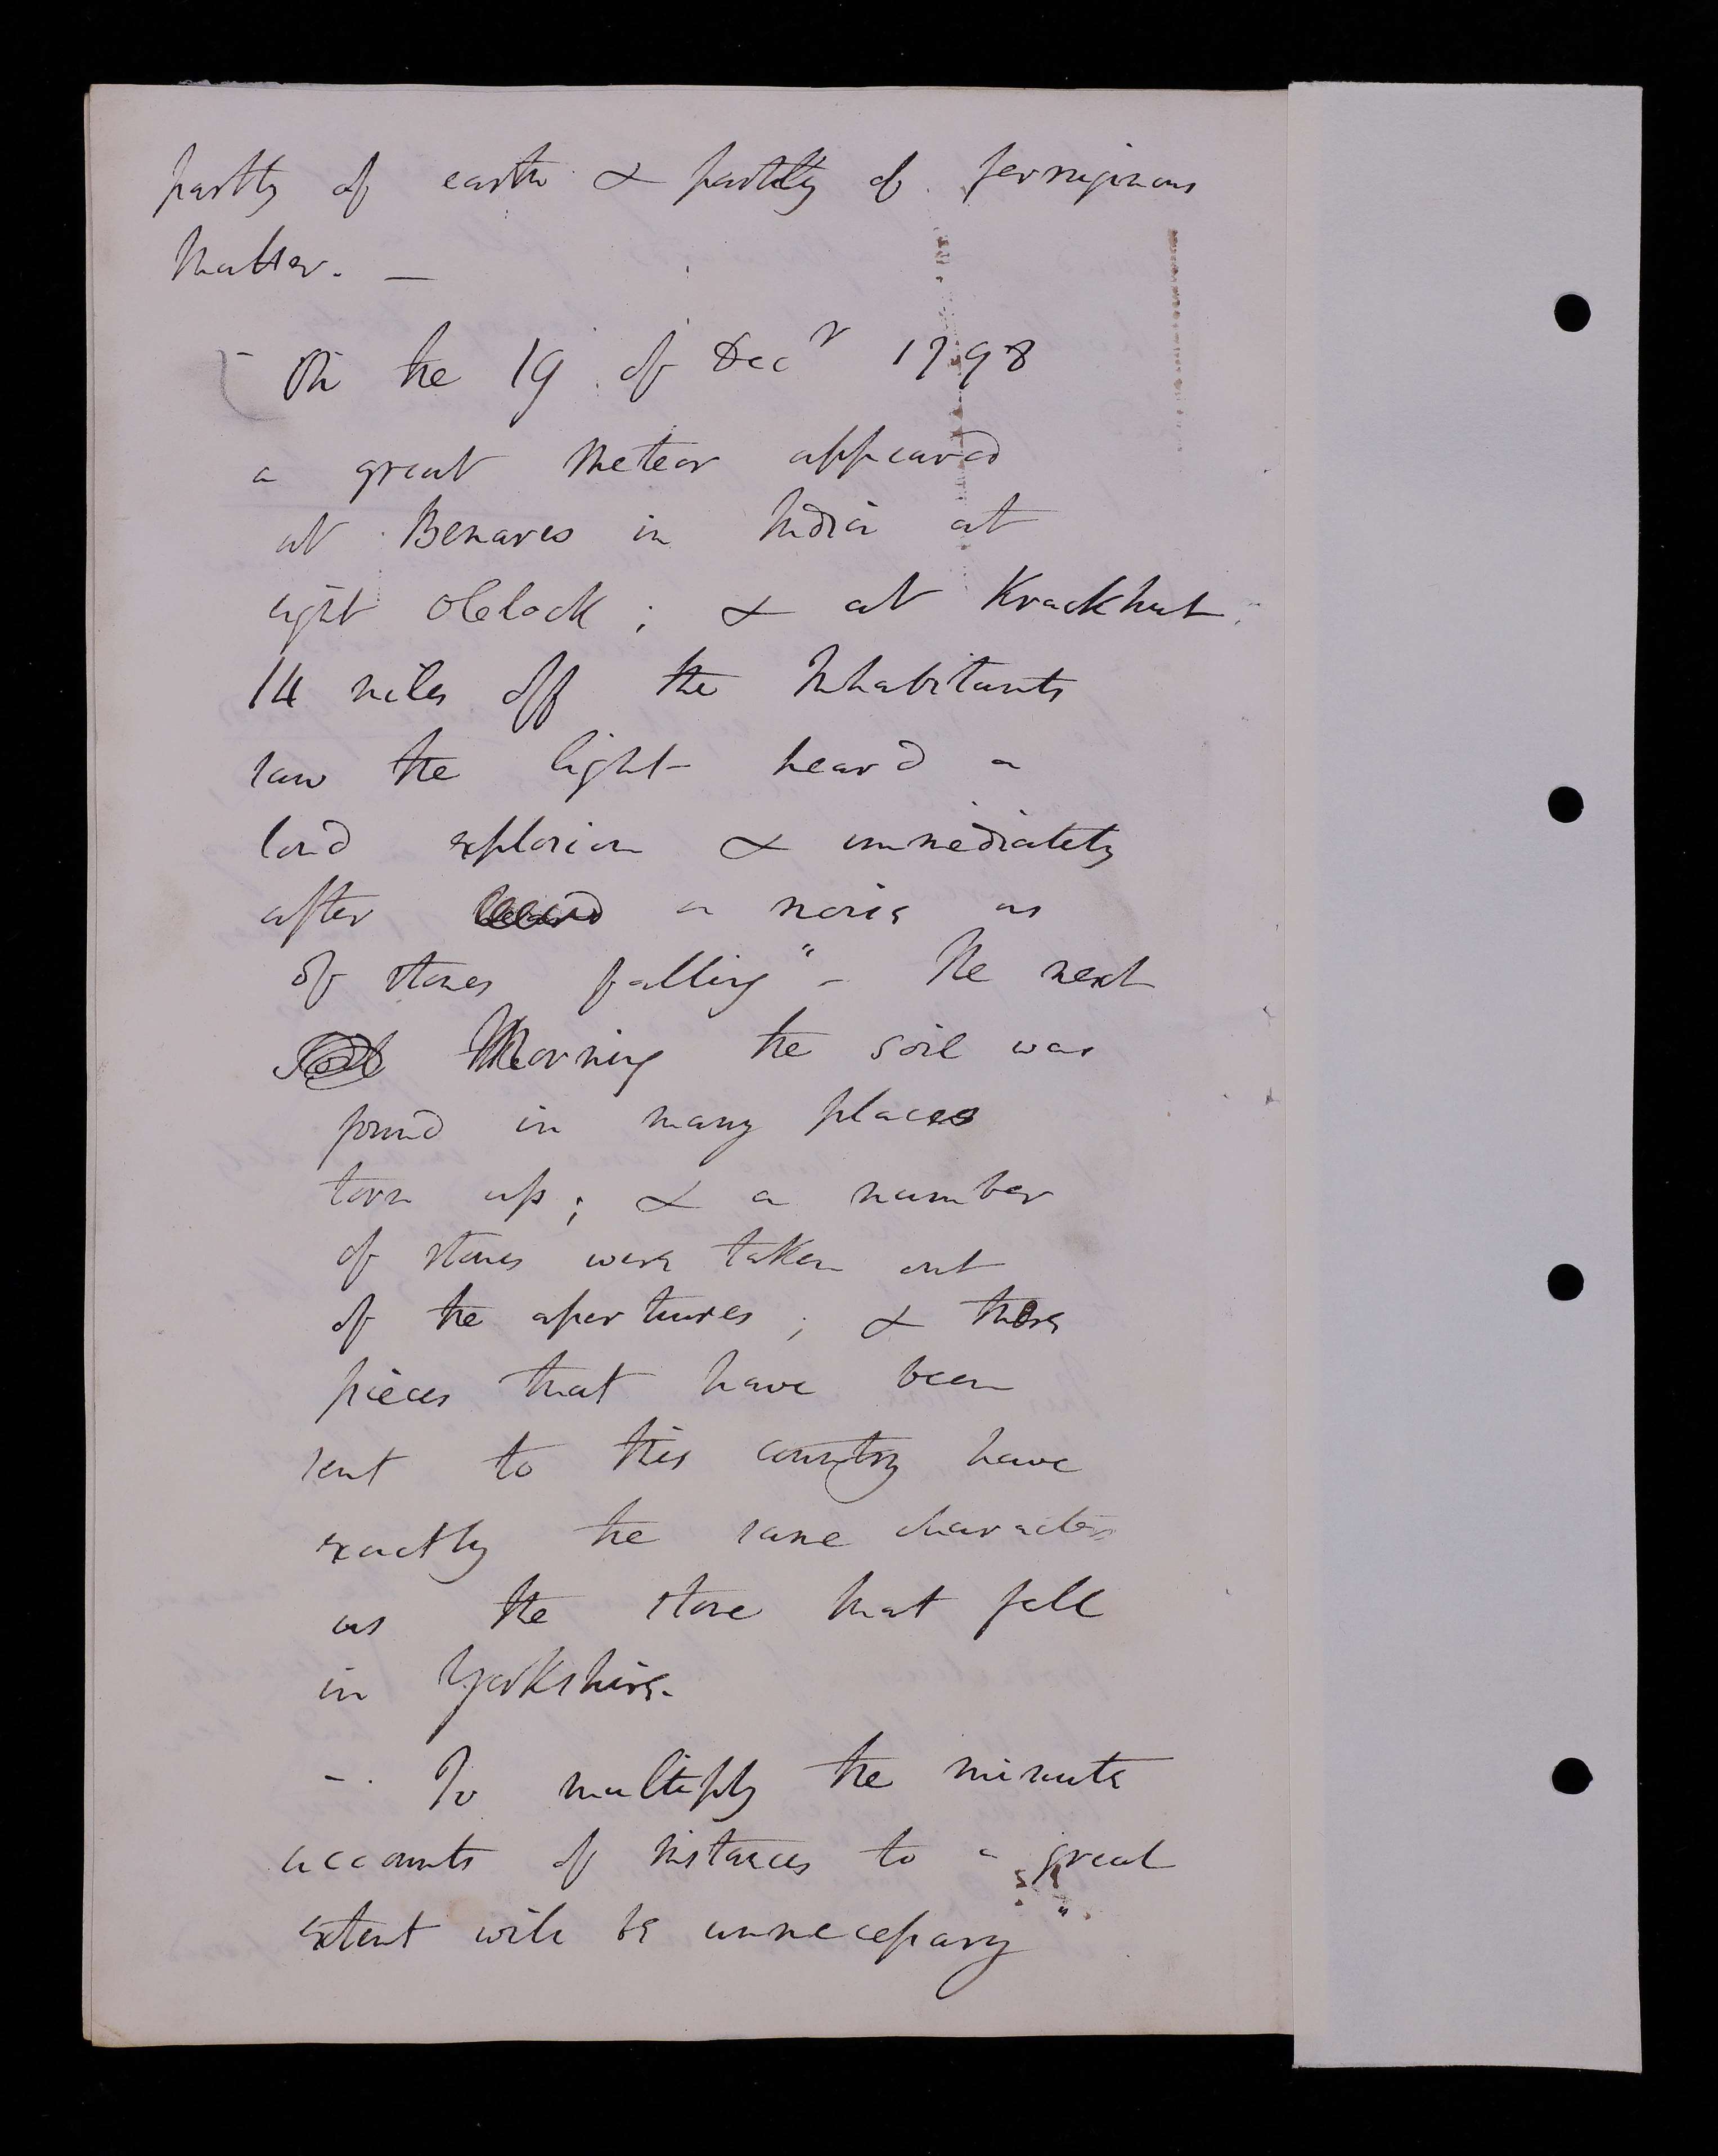 partly of earth & partly of ferruginous
Matter. —
- On the 19 of Decr 1798
a great Meteor appeared
at Benares in India at
eight oClock ; & at Krackhut
14 miles off the Inhabitants
saw the light - heard a
loud explosion & immediately
after heard a noise as
of stones falling" - The next
Morning the soil was
found in many places
torn up ; & a number
of stones were taken out
of the apertures ; & those
pieces that have been
sent to this country have
exactly the same characters
as the stone that fell
in Yorkshire. -
- To multiply the minute
accounts of instances to a great
extent will be unnecessary "